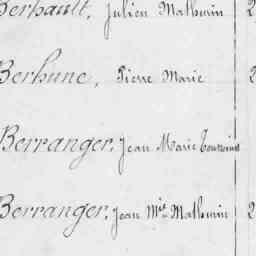 Berhault, Julien Mathurin 2
Berhune, Pierre Marie 2
Berranger, Jean Marie Toussaint
Berranger, Jean Mie Mathurin 2